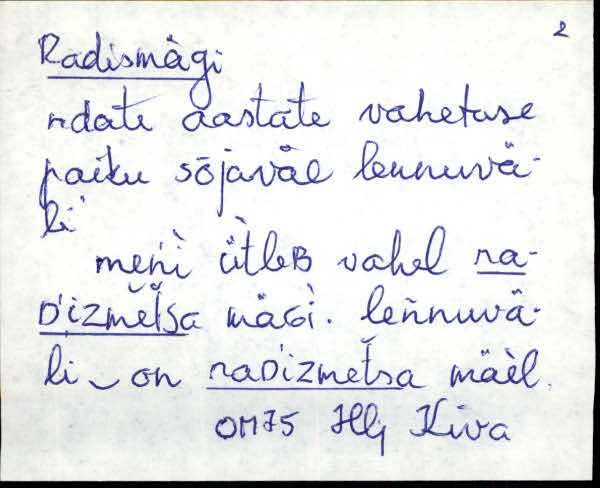 2
Radismägi
ndate aastate vahetuse
paiku sõjaväe lennuvä-
li
meńì ütleʙ vahel ra-
ᴅ'izmĕt̆sa mäɢi. leńnuvä-
li‿on raᴅ'izmet̆sa mäèl.
OM75 Hlj Kiva